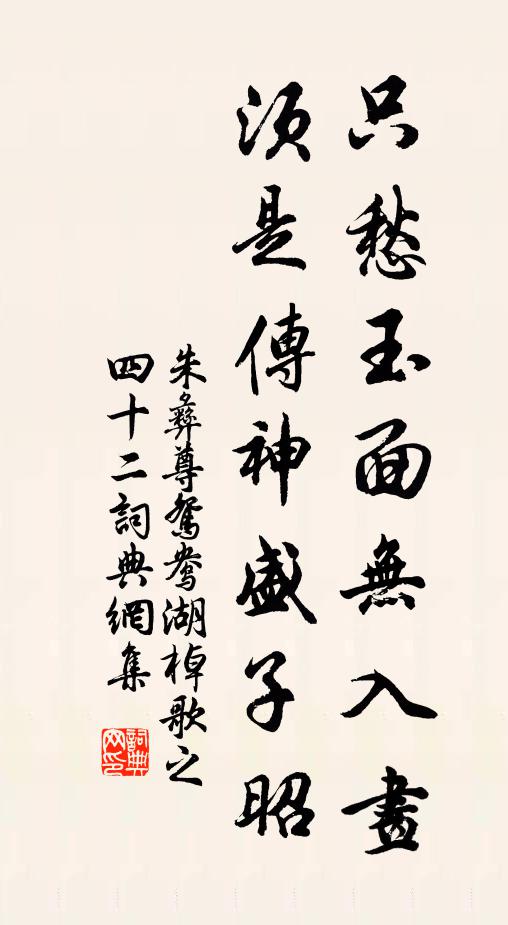 只愁玉面無入畫
須是傳神盛子昭
朱彝尊鴛鴦湖棹歌之
四十二詞典網集
詞典
网印